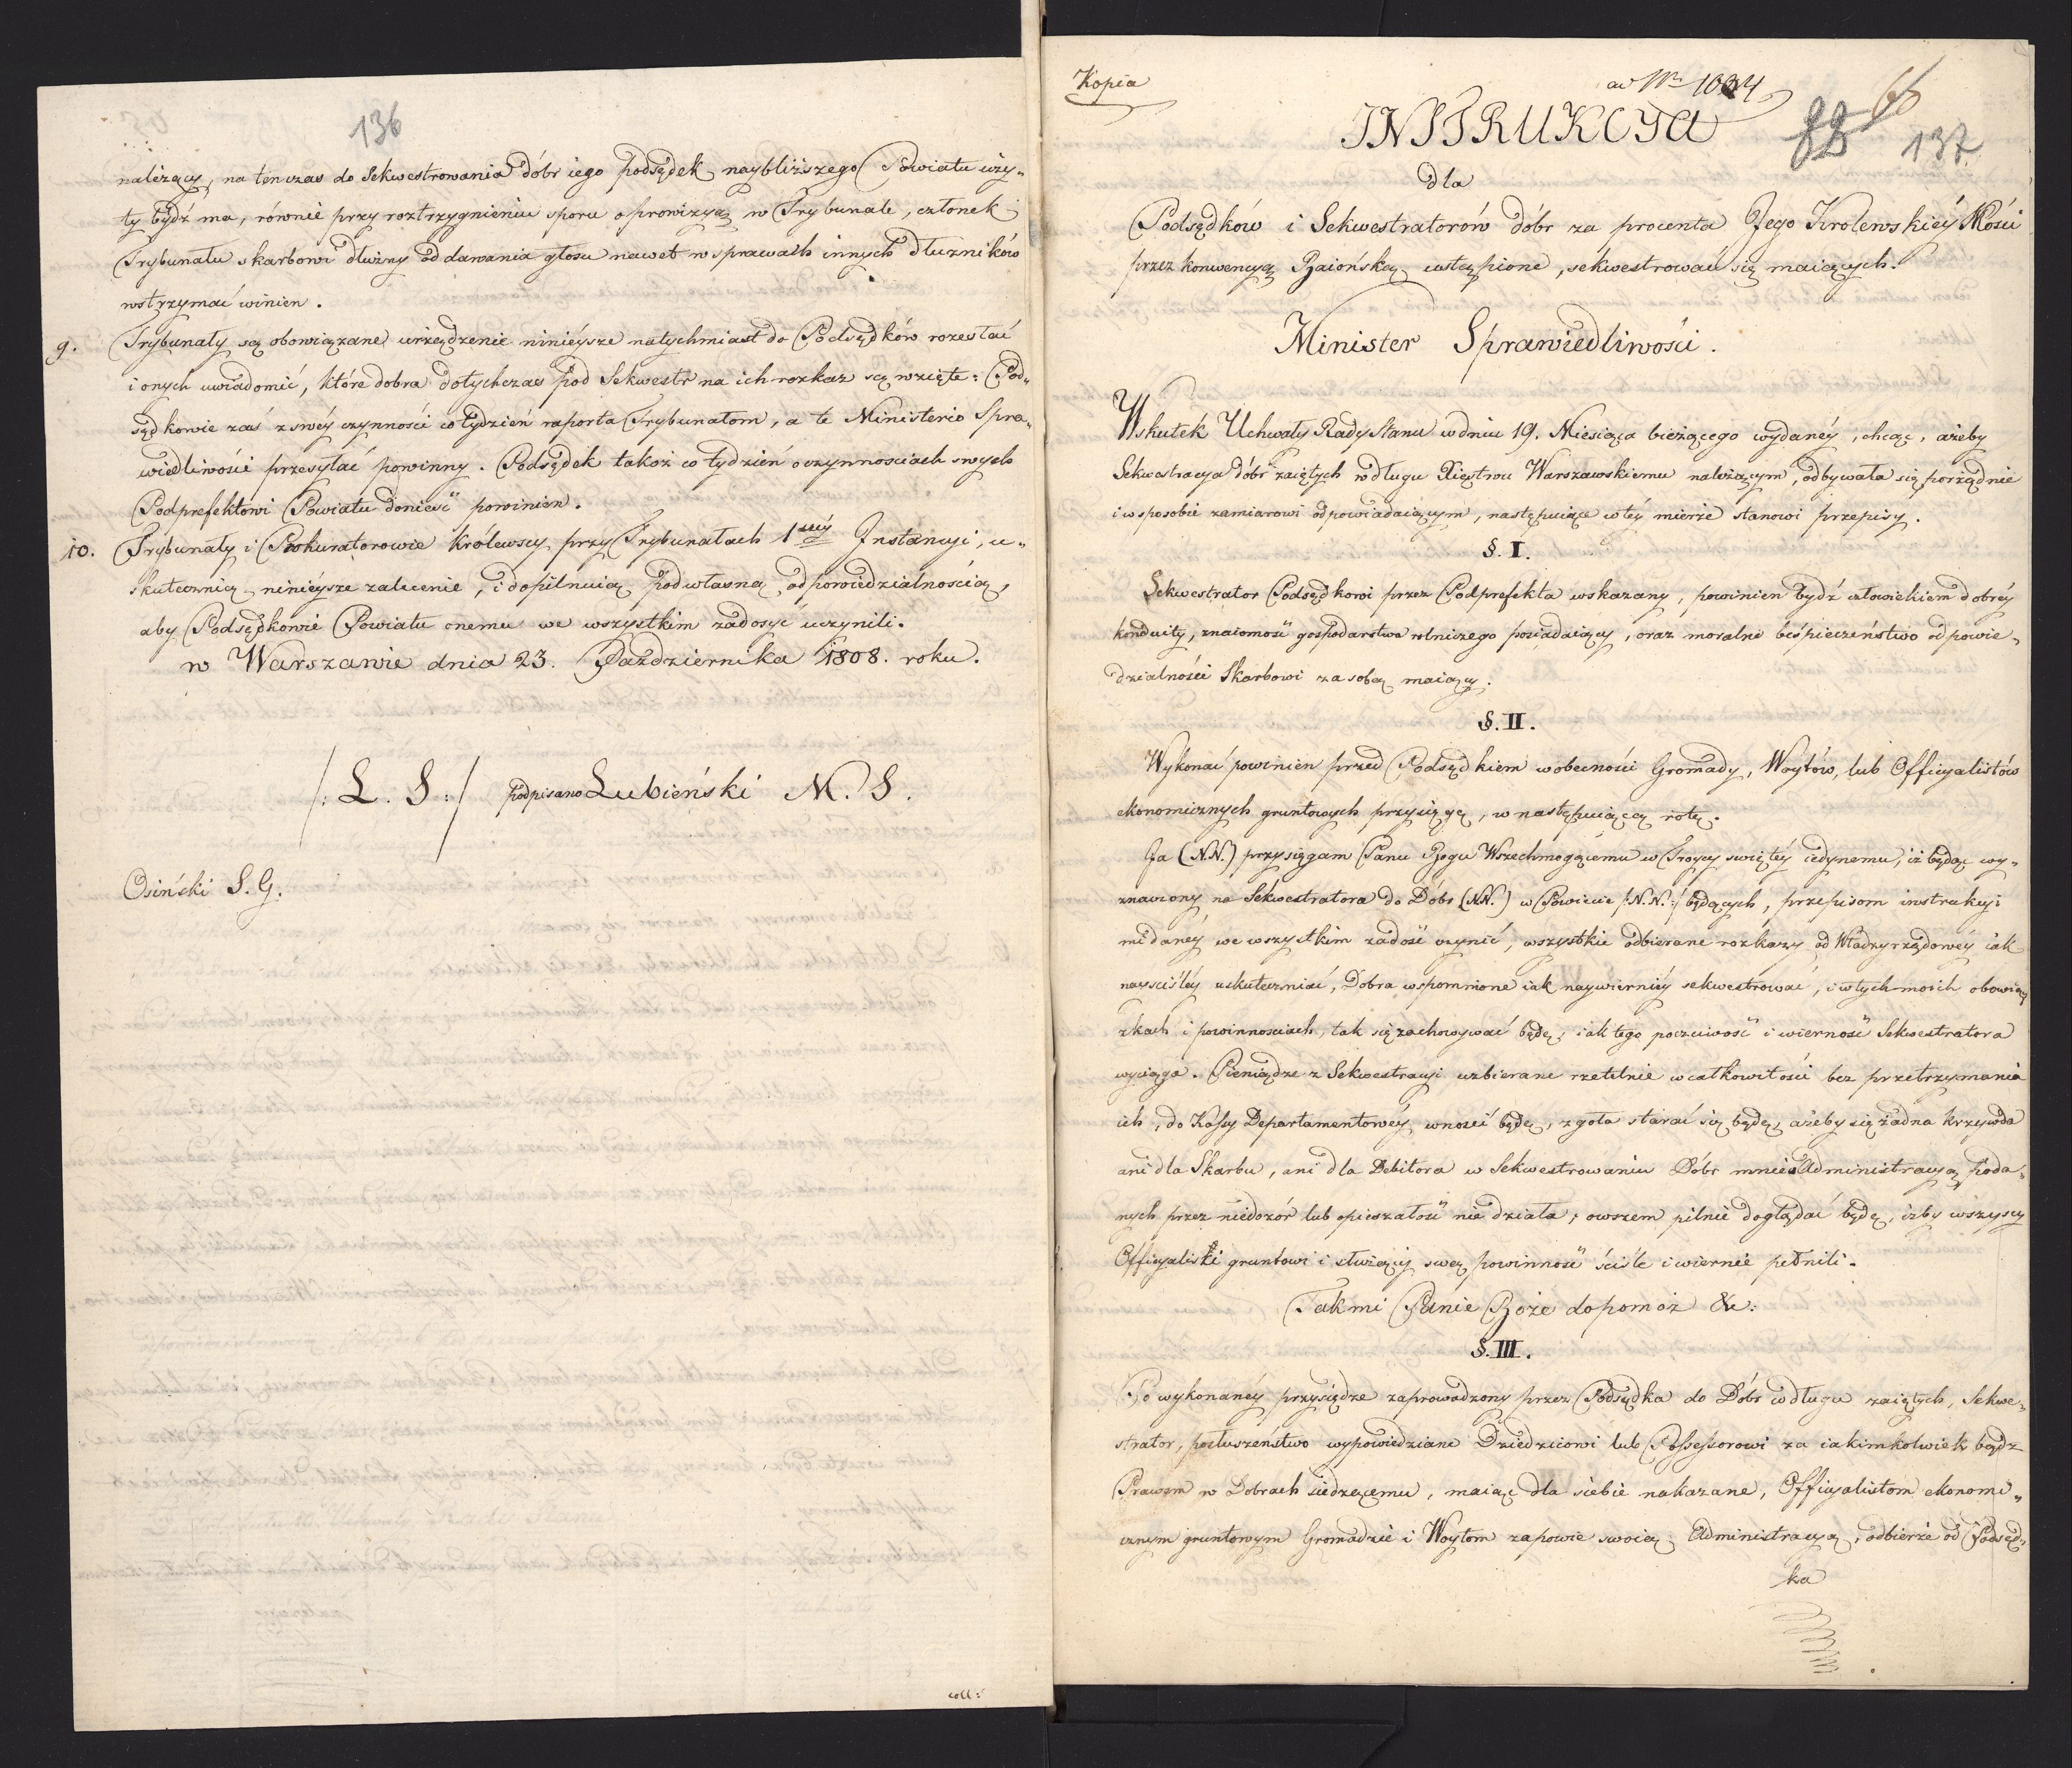 136
należący, na ten czas do Sekwestrowania dóbr iego podsędek naybliższego Powiatu uży-
ty bydź ma, równie przy roztrzygnieniu sporu o prowizyą w Trybunale, członek
Trybunału skarbowi dłużny od dawania głosu nawet w sprawach innych dłużników
wstrzymać winien.
9. Trybunały są obowiązane urządzenie ninieysze natychmiast do Podsędków rozesłać
i onych uwiadomić, które dobra dotychczas pod Sekwestr na ich rozkaz są wzięte: Pod-
sędkowie zaś z swéy czynności co tydzień raporta Trybunałom, a te Ministerio Spra-
wiedliwości przesyłać powinny. Podsędek takoż co tydzień o czynnościach swych
Podprefektowi Powiatu donieść powinien.
10. Trybunały i Prokuratorowie Królewscy przy Trybunałach 1wszéy Instancyi, u-
skutecznią ninieysze zalecenie, i dopilnuią pod własną odpowiedzialnością,
aby Podsędkowie Powiatu onemu we wszystkim zadosyć uczynili.
w Warszawie dnia 23. Października 1808. roku.
/: L. S :/ podpisano Lubieński M. S.
Osiński S. G.
coll:
Kopia
ad Nr 1004
66
137.
INSTRUKCYA
dla
Podsędków i Sekwestratorów dóbr za procenta Jego Królewskiéy Mości
przez konwencyą Baiońską ustąpione, sekwestrować się maiących.
Minister Sprawiedliwości.
Wskutek Uchwały Rady Stanu w dniu 19. Miesiąca bieżącego wydanéy, chcąc, ażeby
Sekwestracya dóbr zaiętych w długu Xięstwu Warszawskiemu należącym, odbywała się porządnie
i w sposobie zamiarowi odpowiadaiącym, następuiące w téy mierze stanowi przepisy.
§. I.
Sekwestrator Podsędkowi przez Podprefekta wskazany, powinien bydź człowiekiem dobréy
konduity, znaiomość gospodarstwa rolniczego posiadaiący, oraz moralne beśpieczeństwo odpowie-
dzialności Skarbowi za sobą maiący.
§. II.
Wykonać powinien przed Podsędkiem w obecności Gromady, Woytów, lub Officyalistów
ekonomicznych gruntowych przysięgę, w następuiącą rotę.
Ja (N.N.) przysięgam Panu Bogu Wszechmogącemu w Troycy świętéy iedynemu, iż będąc wy-
znaczony na Sekwestratora do Dóbr (N.N.) w Powiecie /:N.N.:/ będących, przepisom instrukcyi
mi danéy we wszystkim zadość czynić, wszystkie odbierane rozkazy od Władzy rządowéy iak
nayściśléy uskuteczniać, Dobra wspomnione iak naywiernićy sekwestrować, i w tych moich obowią
zkach i powinnościach, tak się zachowywać będę, iak tego poczciwość i wierność Sekwestratora
wyciąga. Pieniądze z Sekwestracyi uzbierane rzetelnie w całkowitości bez przetrzymania
ich, do Kassy Departamentowéy wnosić będę, zgoła starać się będę, ażeby się żadna krzywda
ani dla Skarbu, ani dla Debitora w Sekwestrowaniu Dóbr mnie w Administracyą poda-
nych przez niedozór lub opieszałość nie działa, owszem pilnie doglądać będę, iżby wszyscy
Officyaliści gruntowi i służący swą powinność ściśle i wiernie pełnili.
Tak mi Panie Boże dopomóż &c:
§. III.
Po wykonanéy przysiędze zaprowadzony przez Podsędka do Dóbr w długu zaiętych, Sekwe-
strator, posłuszeństwo wypowiedziane Dziedzicowi lub Possessorowi za iakimkolwiek bądz
Prawem w Dobrach siedzącemu, maiąc dla siebie nakazane, Officyalistom ekonomi-
cznym gruntowym Gromadzie i Woytom zapowie swoią Administracyą, odbierze od Podsęd-
ka